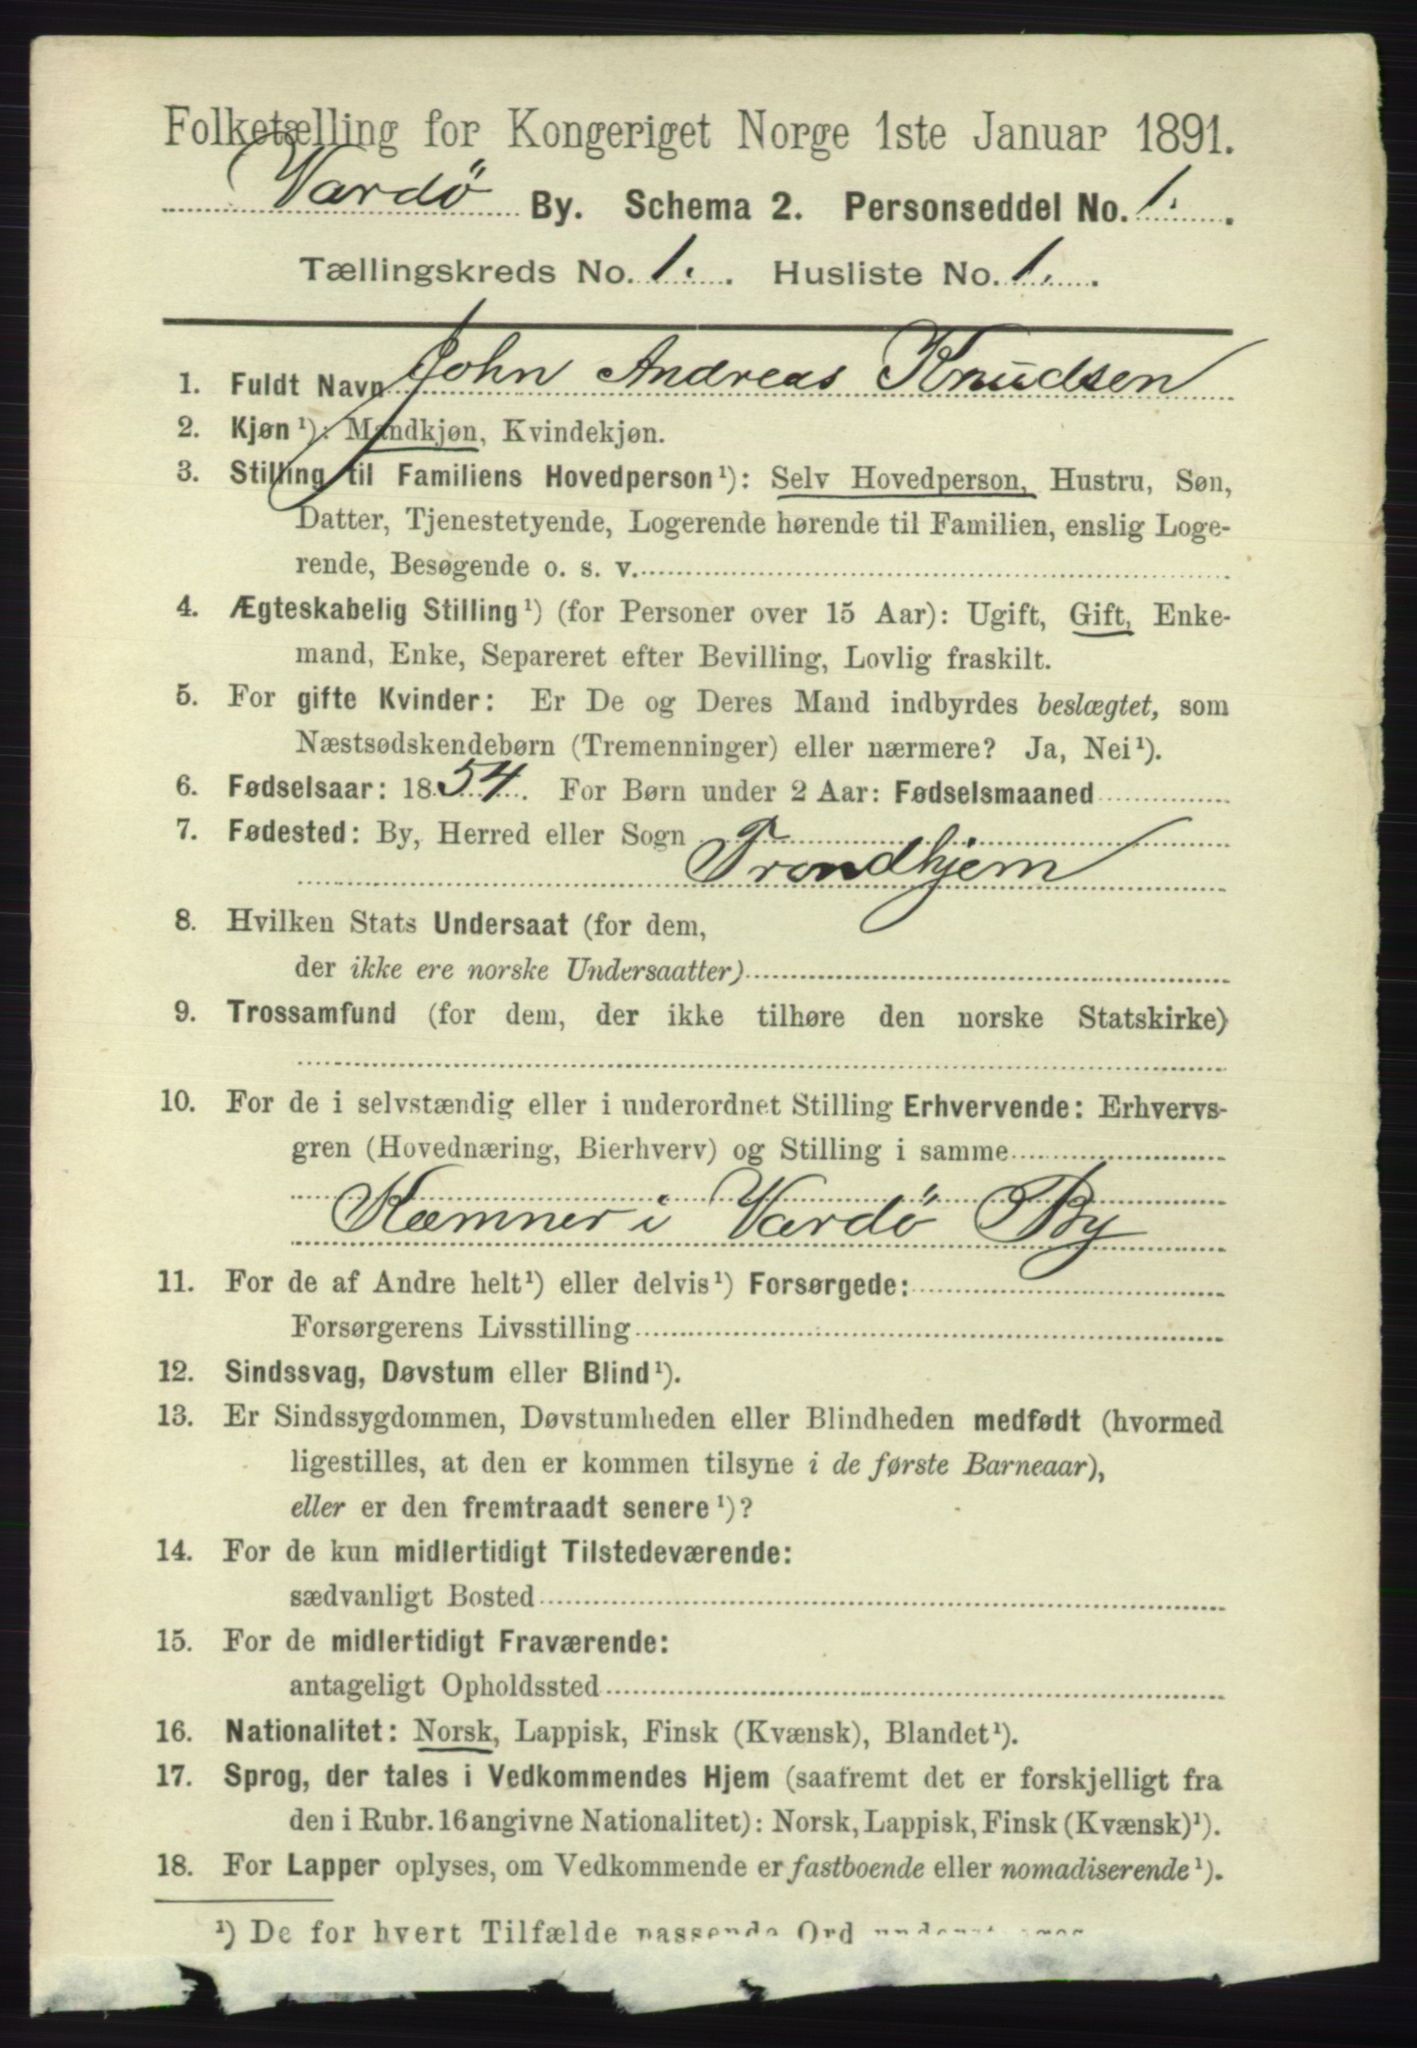 Folketælling for Kongeriget Norge 1ste Januar 1891.
Vardö By. Schema 2. Personseddel No. 1.
Tællingskreds No. 1. Husliste No. 1.
1. Fuldt Navn John Andreas Knudsen
2. Kjøn¹): Mandkjøn, Kvindekjøn.
3. Stilling til Familiens Hovedperson¹): Selv Hovedperson, Hustru, Søn,
Datter, Tjenestetyende, Logerende hørende til Familien, enslig Loge-
rende, Besøgende o. s. v.
4. Ægteskabelig Stilling¹) (for Personer over 15 Aar): Ugift, Gift, Enke-
mand, Enke, Separeret efter Bevilling, Lovlig fraskilt.
5. For gifte Kvinder: Er De og Deres Mand indbyrdes beslægtet, som
Næstsødskendebørn (Tremenninger) eller nærmere? Ja, Nei¹).
6. Fødselsaar: 1854. For Børn under 2 Aar: Fødselsmaaned
7. Fødested: By, Herred eller Sogn
Trondhjem
8. Hvilken Stats Undersaat (for dem,
der ikke ere norske Undersaatter)
9. Trossamfund (for dem, der ikke tilhøre den norske Statskirke)
10. For de i selvstændig eller i underordnet Stilling Erhvervende: Erhvervs-
gren (Hovednæring, Bierhverv) og Stilling i samme
Kæmner i Vardö By
11. For de af Andre helt¹) eller delvis¹) Forsørgede:
Forsørgerens Livsstilling
12. Sindssvag, Døvstum eller Blind¹).
13. Er Sindssygdommen, Døvstumheden eller Blindheden medfødt (hvormed
ligestilles, at den er kommen tilsyne i de første Barneaar),
eller er den fremtraadt senere¹)?
14. For de kun midlertidigt Tilstedeværende:
sædvanligt Bosted
15. For de midlertidigt Fraværende:
antageligt Opholdssted
16. Nationalitet: Norsk, Lappisk, Finsk (Kvænsk), Blandet¹).
17. Sprog, der tales i Vedkommendes Hjem (saafremt det er forskjelligt fra
den i Rubr. 16 angivne Nationalitet): Norsk, Lappisk, Finsk (Kvænsk)¹).
18. For Lapper oplyses, om Vedkommende er fastboende eller nomadiserende¹).
¹) De for hvert Tilfælde passende Ord